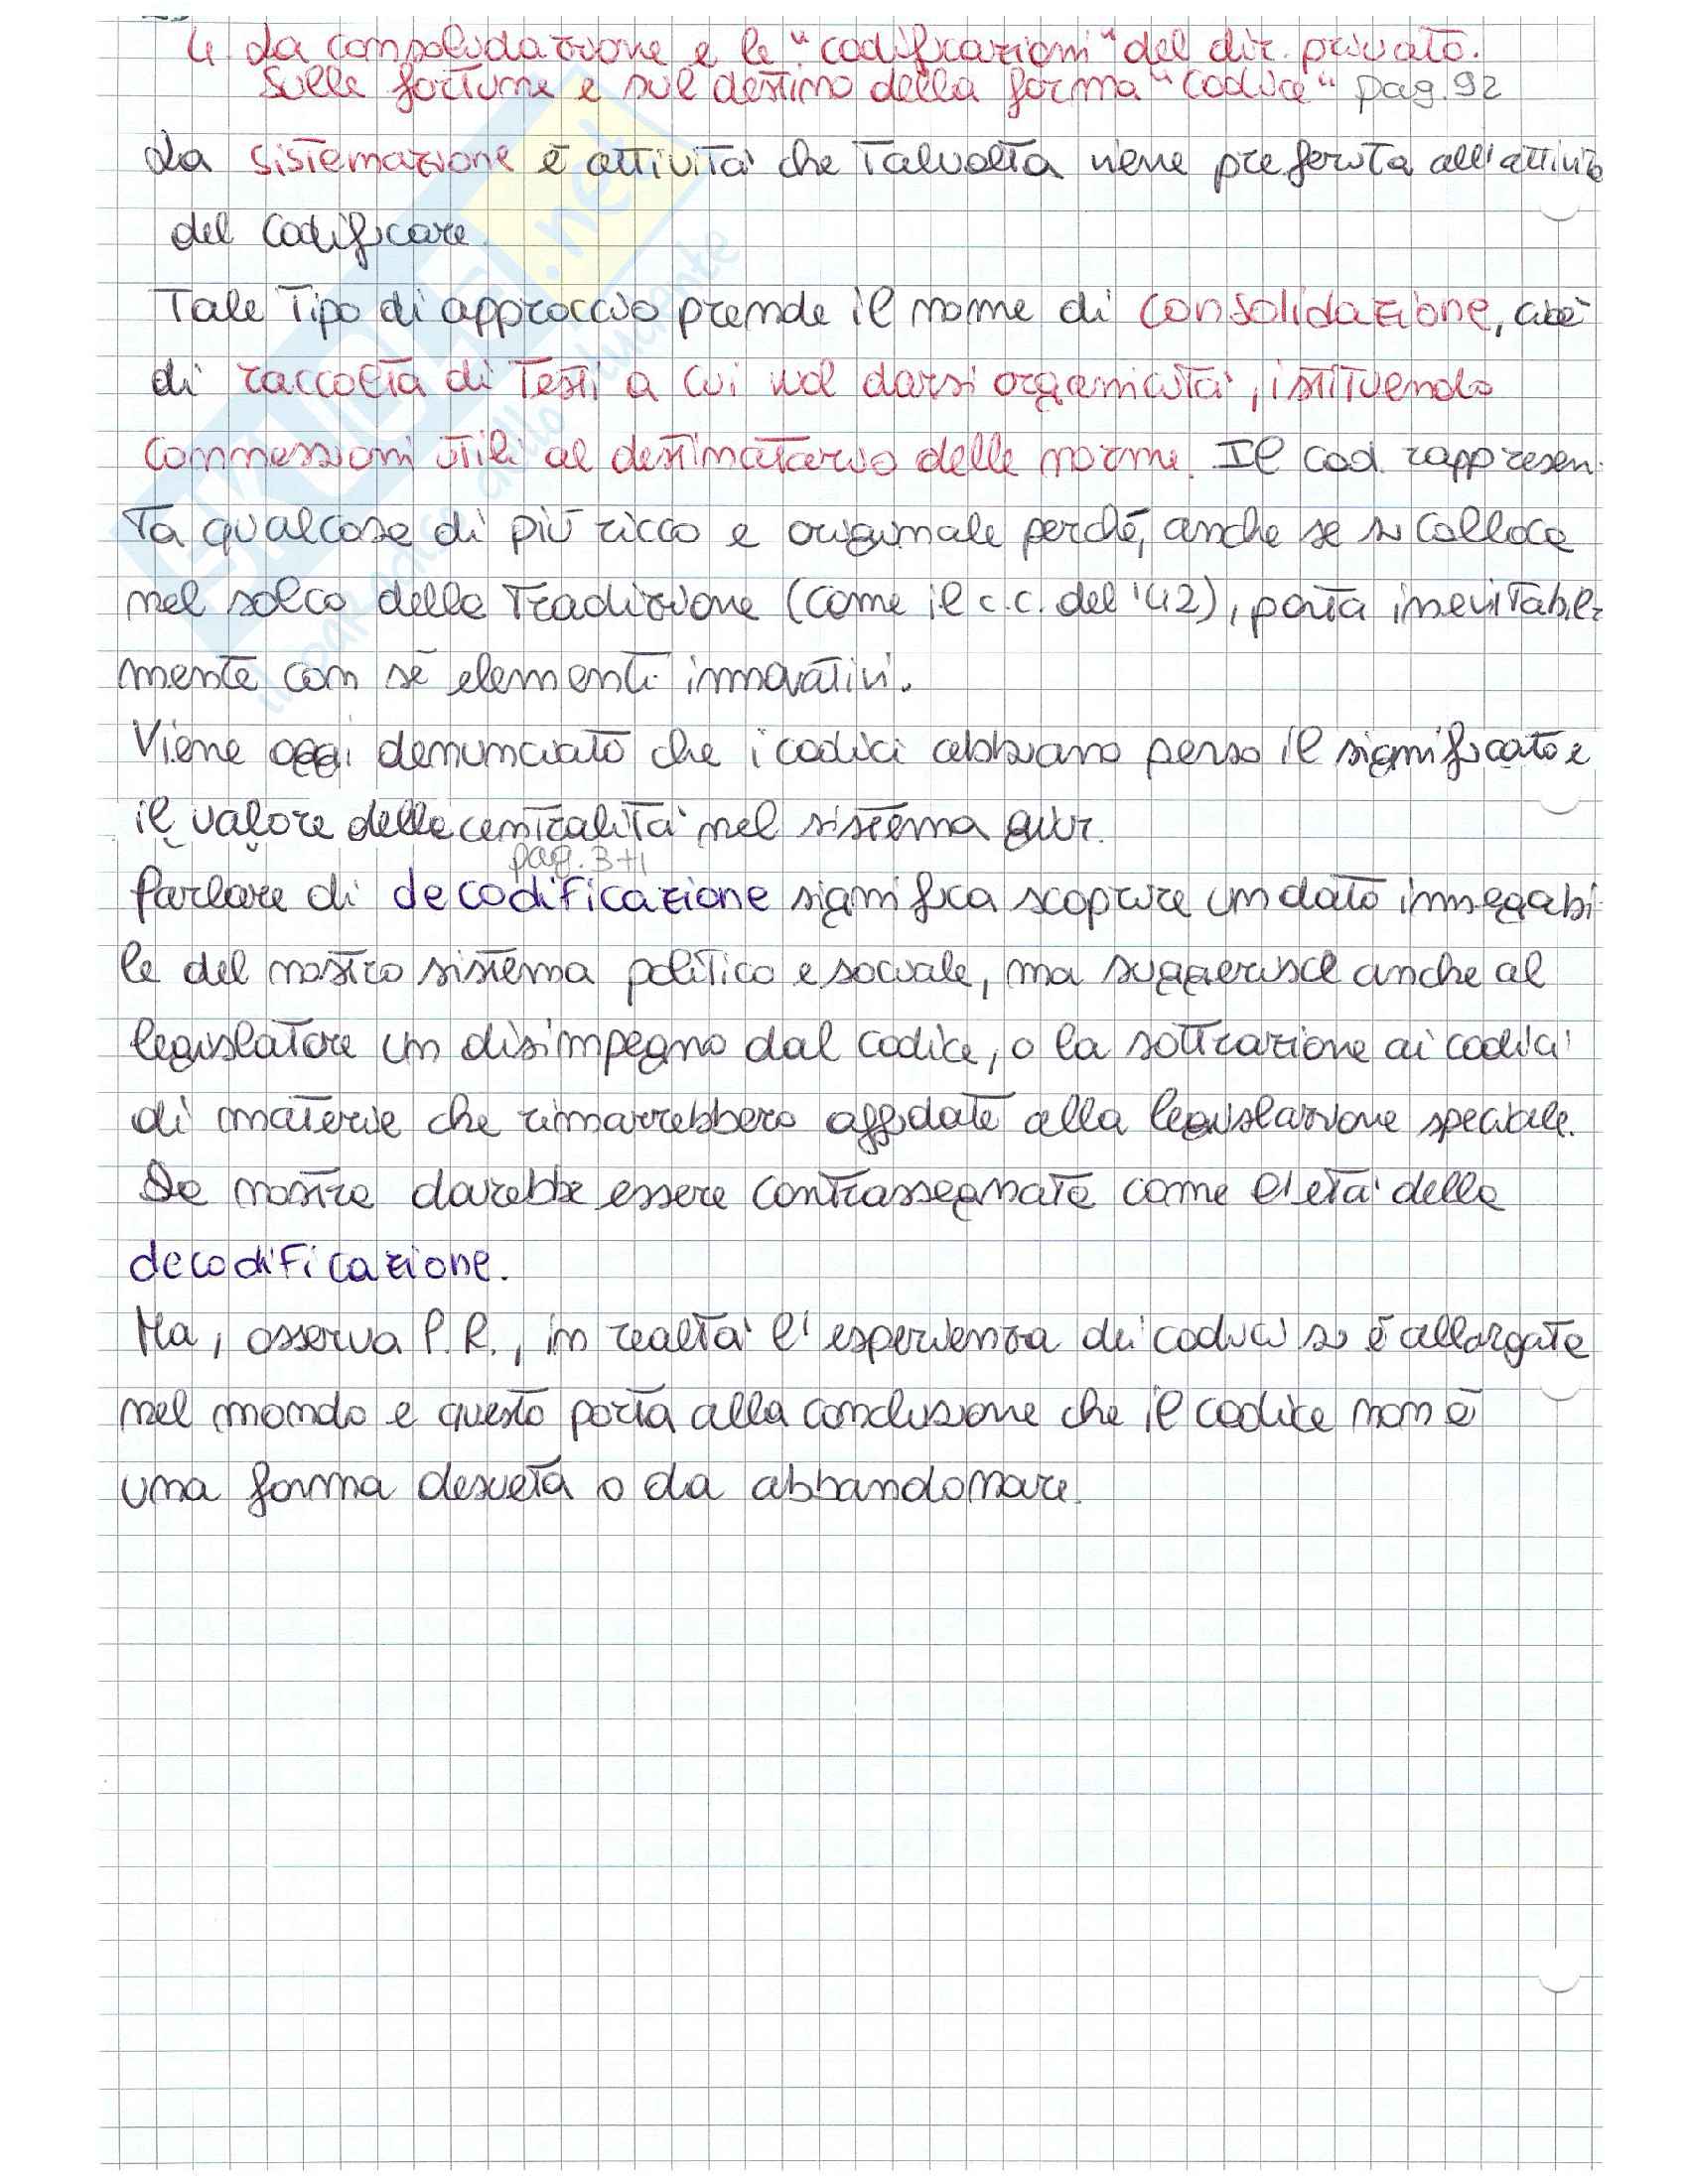 4. La consolidazione e le "codificazioni" del dir. privato.
Sulle fortune e sul destino della forma "Codice" pag. 92
La sistemazione è attività che talvolta viene preferita all'attività
del codificare.
Tale tipo di approccio prende il nome di consolidazione, cioè
di raccolta di testi a cui vol darsi organicità, istituendo
connessioni utili al destinatario delle norme. Il cod. rappresen-
ta qualcosa di più ricco e originale perché, anche se si colloca
nel solco della tradizione (come il c.c. del '42), porta inevitabil-
mente con sé elementi innovativi.
Viene oggi denunciato che i codici abbiano perso il significato e
il valore della centralità nel sistema giur.
pag. 3+1
Parlare di decodificazione significa scoprire un dato innegabi-
le del nostro sistema politico e sociale, ma suggerisce anche al
legislatore un disimpegno dal codice, o la sottrazione ai codici
di materie che rimarrebbero affidate alla legislazione speciale.
La nostra darebbe essere contrassegnata come l'età della
decodificazione.
Ma, osserva P.R., in realtà l'esperienza dei codici si è allargata
nel mondo e questo porta alla conclusione che il codice non è
una forma desueta o da abbandonare.
SKUOLA.net
il paradiso dello studente